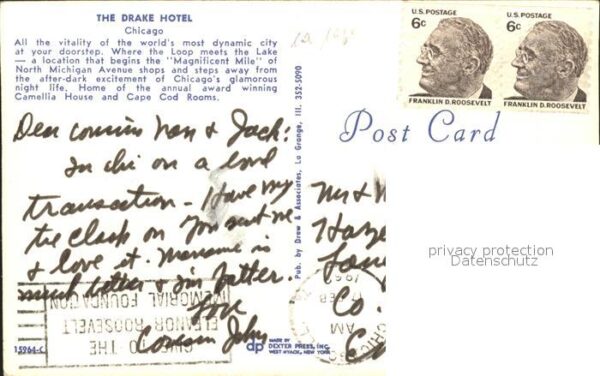 THE DRAKE HOTEL
Chicago
All the vitality of the world's most dynamic city
at your doorstep. Where the Loop meets the Lake
— a location that begins the "Magnificent Mile" of
North Michigan Avenue shops and steps away from
the after-dark excitement of Chicago's glamorous
night life. Home of the annual award winning
Camellia House and Cape Cod Rooms.
Dear cousins Nan & Jack:
In chi on a
transaction - Have my
the clock on you sent me
& love it. is
much better & I'm fatter.
Love
Cousin John
15964-C
GIVE TO THE
ELEANOR ROOSEVELT
MEMORIAL FOUNDATION
Pub. by Drew & Associates, La Grange, Ill. 352-5090
dp
MADE BY
DEXTER PRESS, INC.
WEST NYACK, NEW YORK
U.S. POSTAGE
6c
FRANKLIN D. ROOSEVELT
U.S. POSTAGE
6c
FRANKLIN D. ROOSEVELT
Post Card
Mr &
Co.
CHIC
AM
FEB
privacy protection
Datenschutz